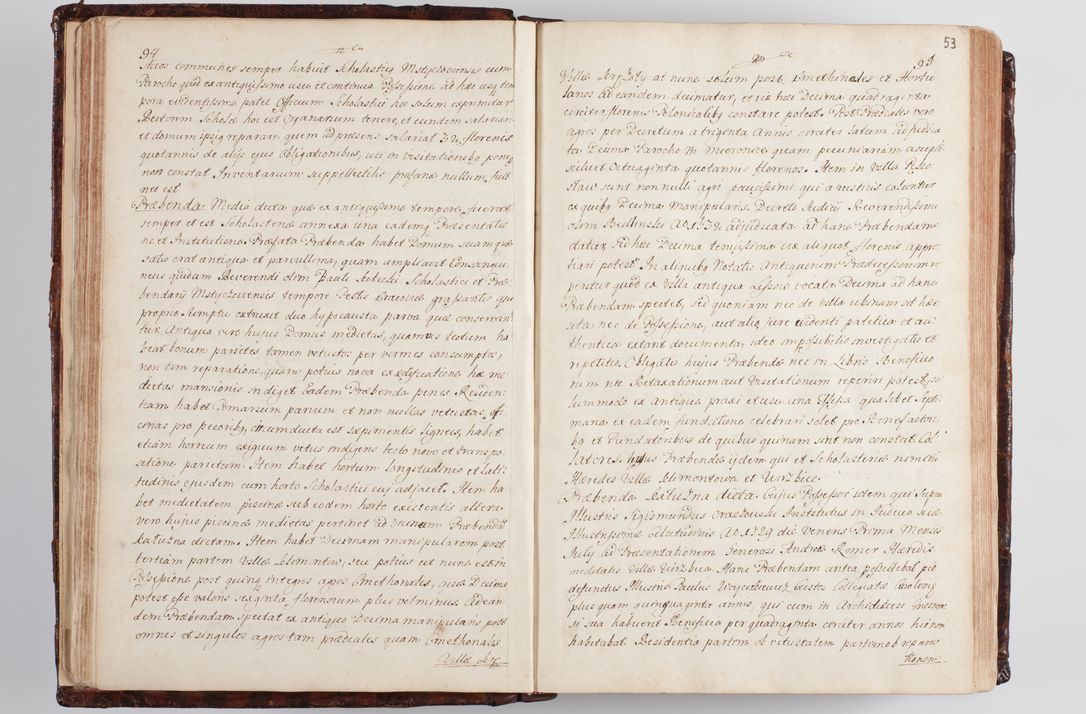 94
Suos communes semper habuit Scholasticus Mstyczoviensis cum
Parocho quod ex antiquissimo usu et continua Possesione ad haec usq tem
pora evidentissime patet Officium Scholastici hoc solum exprimitur
Rectorem Scholae hoc est Organarium tenere, et eundem salariari
et domum ipsiq reparare quem ad praesens salariat 32 florenis
quotannis de alijs ejus Obligationibus, uti in Visitationibq
non constat Inventarium suppellectilis profanae nullum, fuit
nec est
Praebenda. Media dicta quae ex antiquissimo tempore fuerat
semper et est Scholasteriae annexa una eademq Praesentatio
nec et Institutione. Praefata Praebenda habet Domum suam quae
satis erat antiqua et parvullima, quam ampliavit Consangui,
neus quidam Reverendi olim Pauli Scholastici et Prae
bendarij Mstyczoviensis tempore Pestis Cracoviae grassantis qui
proprio sumptu extruxit duo hypocausta parva quae conservan
tur. Antiqua vero hujus Domus medietas, quamvis tectum ha
beat bonum parietes tamen vetustos per vermes consumptos,
non tam reparatione, quam potius nova exaedificatione haec me
dietas mansionis indiget. Eadem Praebenda penes Residen
tiam habet Pomarium parvum et non nullas vetustas offi
cinas pro pecoribq, circumducta est saepimentis ligneis, habet
etiam horreum exiguum vetus indigens tecto novo et transpo
sitione parietum. Item habet hortum longitudinis et lati
tudinis ejusdem cum horto Scholastici cuj adjacet. Item ha
bet medietatem piscinae sub eodem horto existentis altera
vero hujus piscinae medietas pertinet ad vicinum Praebendae
Kaluzna dictam. Item habet Decimam manipularem post
tertiam partem Villae Klimontow, seu potius ut nunc est in
Possesione post quinq integros agros Cmethonales, quae Decima
potest esse valoris sexaginta florenorum plus vel minus. Ad ean
dem Praebendam spectat ex antiquo Decima manipularis post
omnes et singulos agros tam praediales quam Cmethonales
Villae Serj
53
95
Villae at nunc solum post Cmethonales et Hortu
lanos ad eandem decimatur, et via haec Decima quadraginta
circiter florenis Polonicalibq constare potest. Post Praediales vero
agros per Decretum a triginta Annis circiter latum adjudica
ta Decima Parocho in Mieronice quam pecuniariam accipit
scilicet Octuaginta quotannis florenos. Item in Villa
slaw sunt non nulli agri paucissimi qui a rusticis coluntur
ex quibq Decima Manipularis Decreto Iudicij Reverendissimi
osim adjudicata ad hanc Praebendam
datur, sed haec Decima tenuissima vix aliquot florenis appre
tiari potest. In aliquibq Notatis Antiquorum Praedecessorum re
peritur quod ex Villa antiqua vocata Decima ad hanc
Praebendam spectet, sed quoniam nec de Villa ubinam sit haec
sita nec de Possesione, aut alio jure evidenti patet ica et au
thentica extant documenta, ideo impossibilis investigatio et
repetitio. Obligatio hujus Praebendae nec in Libris Beneficio
rum nec Retaxationum aut Visitationum reperiri potest, so
lummodo ex antiqua praxi et usu una Missa qualibet Septi
mana ex eadem fundatione celebrari solet pro Benefactori
bq et Fundatoribus de quibus quinam sint non constat Col
latores hujus Praebendae ijdem qui et Scholasteriae nimirum
Haeredes Villae Klimontowa et Wirzbica.
Praebenda Kaluzna dicta. Cujus Possessor idem qui supra
Illustris Sigismundus Institutus in Iudicio suae
Illustrissimae Celsitudinis Ao 1729 die Veneris Prima Mensis
July ad Praesentationem Generosi Andreae Romer Haeredis
medietatis Villae Wirzbica. Hanc Praebendam antea possidebat pie
defunctus Illustris Paulus Woyciechowicz Custos Collegiatae
plus quam quinquaginta annis, qui cum in Archidioecesi Gnesnen
si sua habuerit Beneficia per quadraginta circiter annos hic non
habitabat. Residentia partim ob vetustatem partim ob repara
tionem